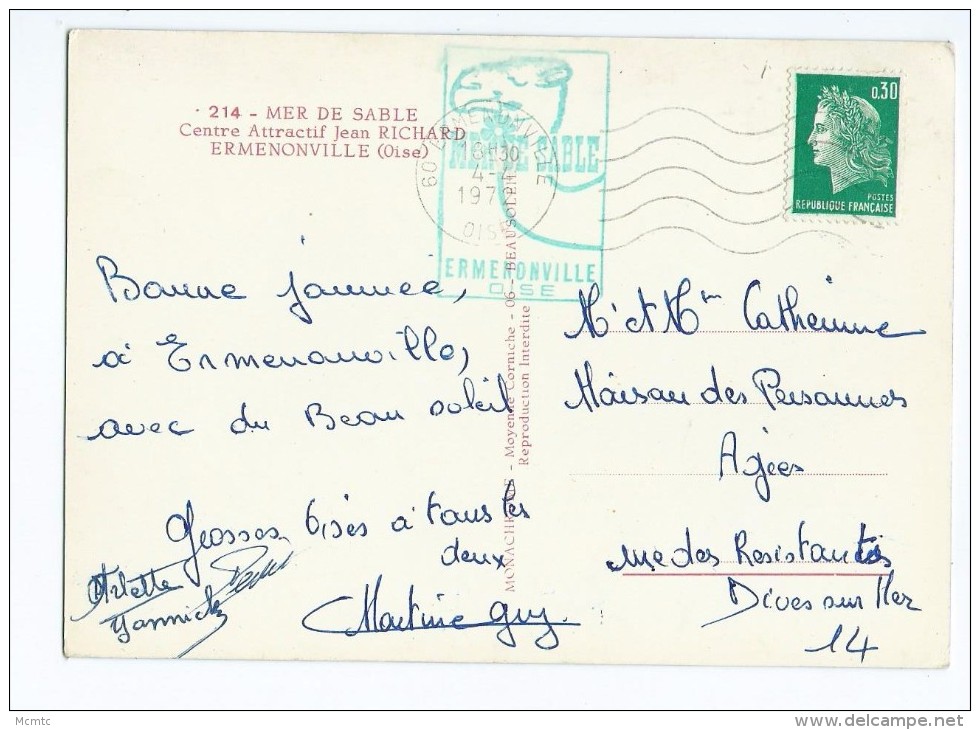 214 - MER DE SABLE
Centre Attractif Jean RICHARD
ERMENONVILLE (Oise)
60 ERMENONVILLE
18H30
4-4
1972
OISE
MER DE SABLE
ERMENONVILLE
OISE
0.30
POSTES
REPUBLIQUE FRANÇAISE
Bonne journée,
à Ermenonville,
avec du Beau soleil
Grosses bises à tous les
deux
Arlette
Yannick
Martine Guy
- Moyenne Corniche - 06 - BEAUSOLEIL
Reproduction Interdite
Mr et Mme Catherinne
Maison des Personnes
Agées
rue des Resistants
Dives sur Mer
14
Mcmtc
www.delcampe.net